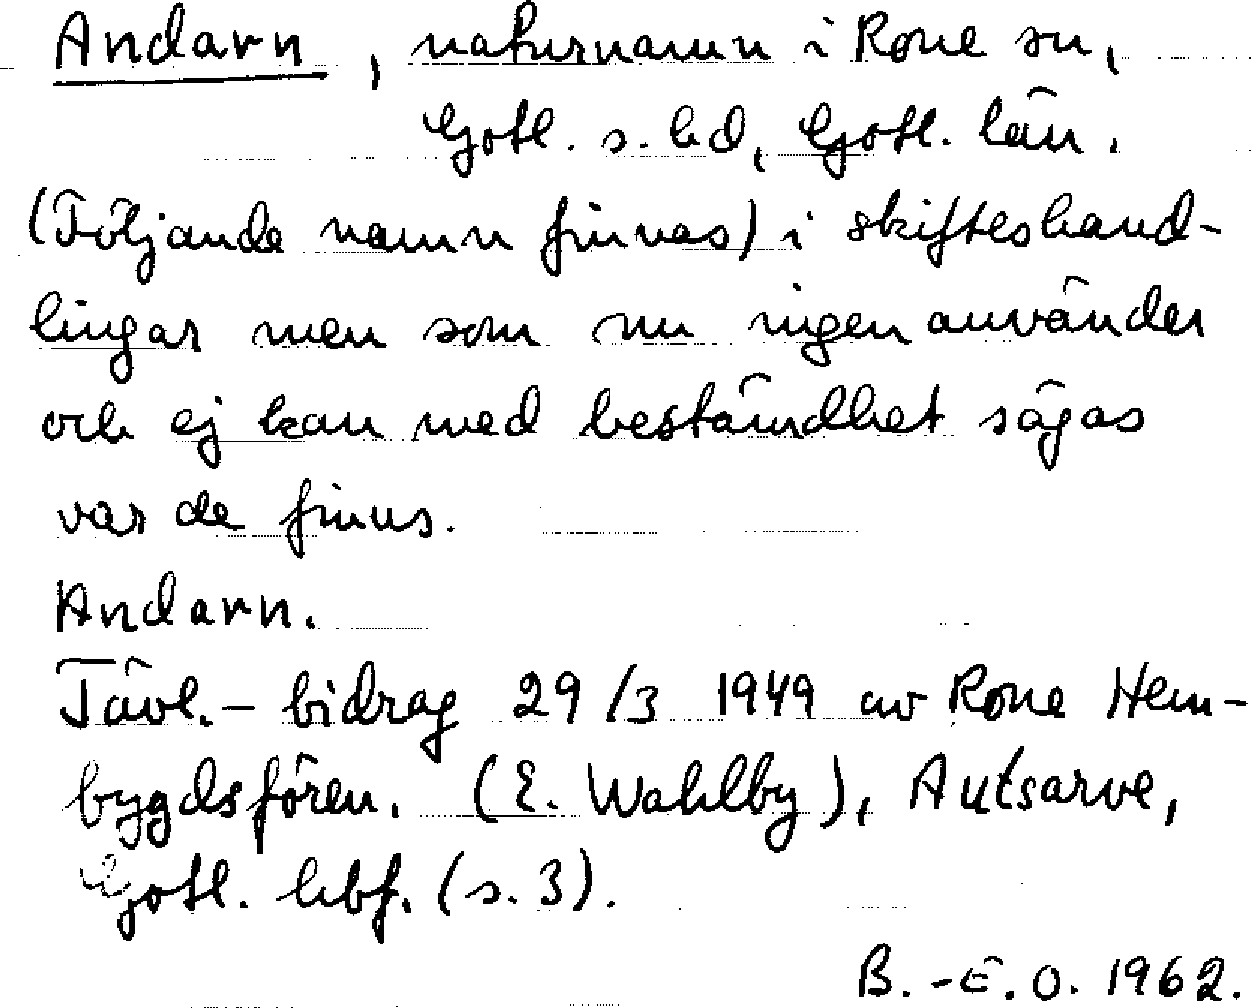 Andarn, naturnamn i Rone sn,
Gotl. s. hd, Gotl. län.
(Följande namn finnas) i skifteshand-
lingar men som nu ingen använder
och ej kan med bestämdhet sägas
var de finns.
Andarn.
Tävl.- bidrag 29/3 1949 av Rone Hem-
bygdsfören. (E. Wahlby), Autsarve,
Gotl. hbf. (s. 3).
B.-E.O. 1962.